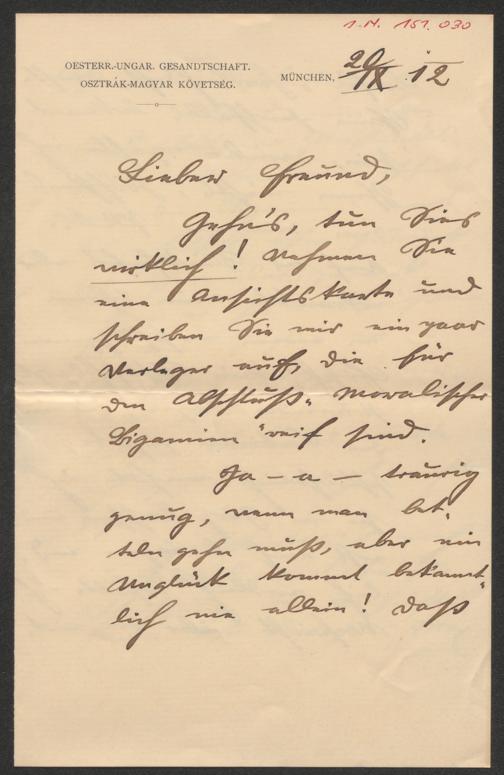 I.N. 151.030
OESTERR.-UNGAR. GESANDTSCHAFT.
OSZTRÁK-MAGYAR KÖVETSÉG.
MÜNCHEN, 20/IX 12
Lieber Freund,
Gehn's, tun Sies
wirklich! Nehmen Sie
eine Ansichtskarte und
schreiben Sie mir ein paar
Verleger auf, die für
den Abschluß „moralischer
Bigamien" reif sind.
Ja – a – traurig
genug, wenn man bet-
teln gehn muß, aber ein
Unglück kommt bekannt-
lich nie allein! Daß